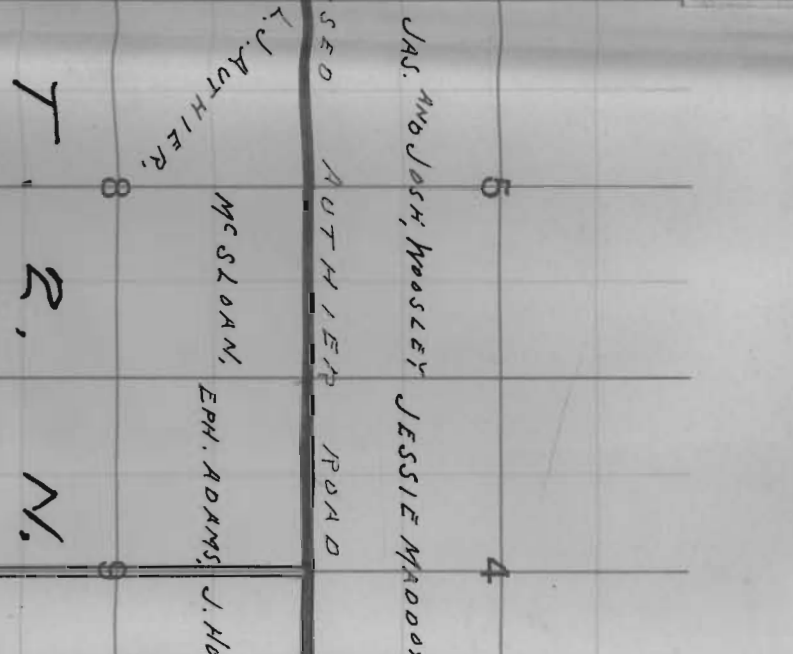 JAS. AND JOSH, WOOSLEY JESSIE
5
4
AUTHIER ROAD
J. AUTHIER,
MCSLOAN, EPH. ADAMS,
8
9
T. 2. N.